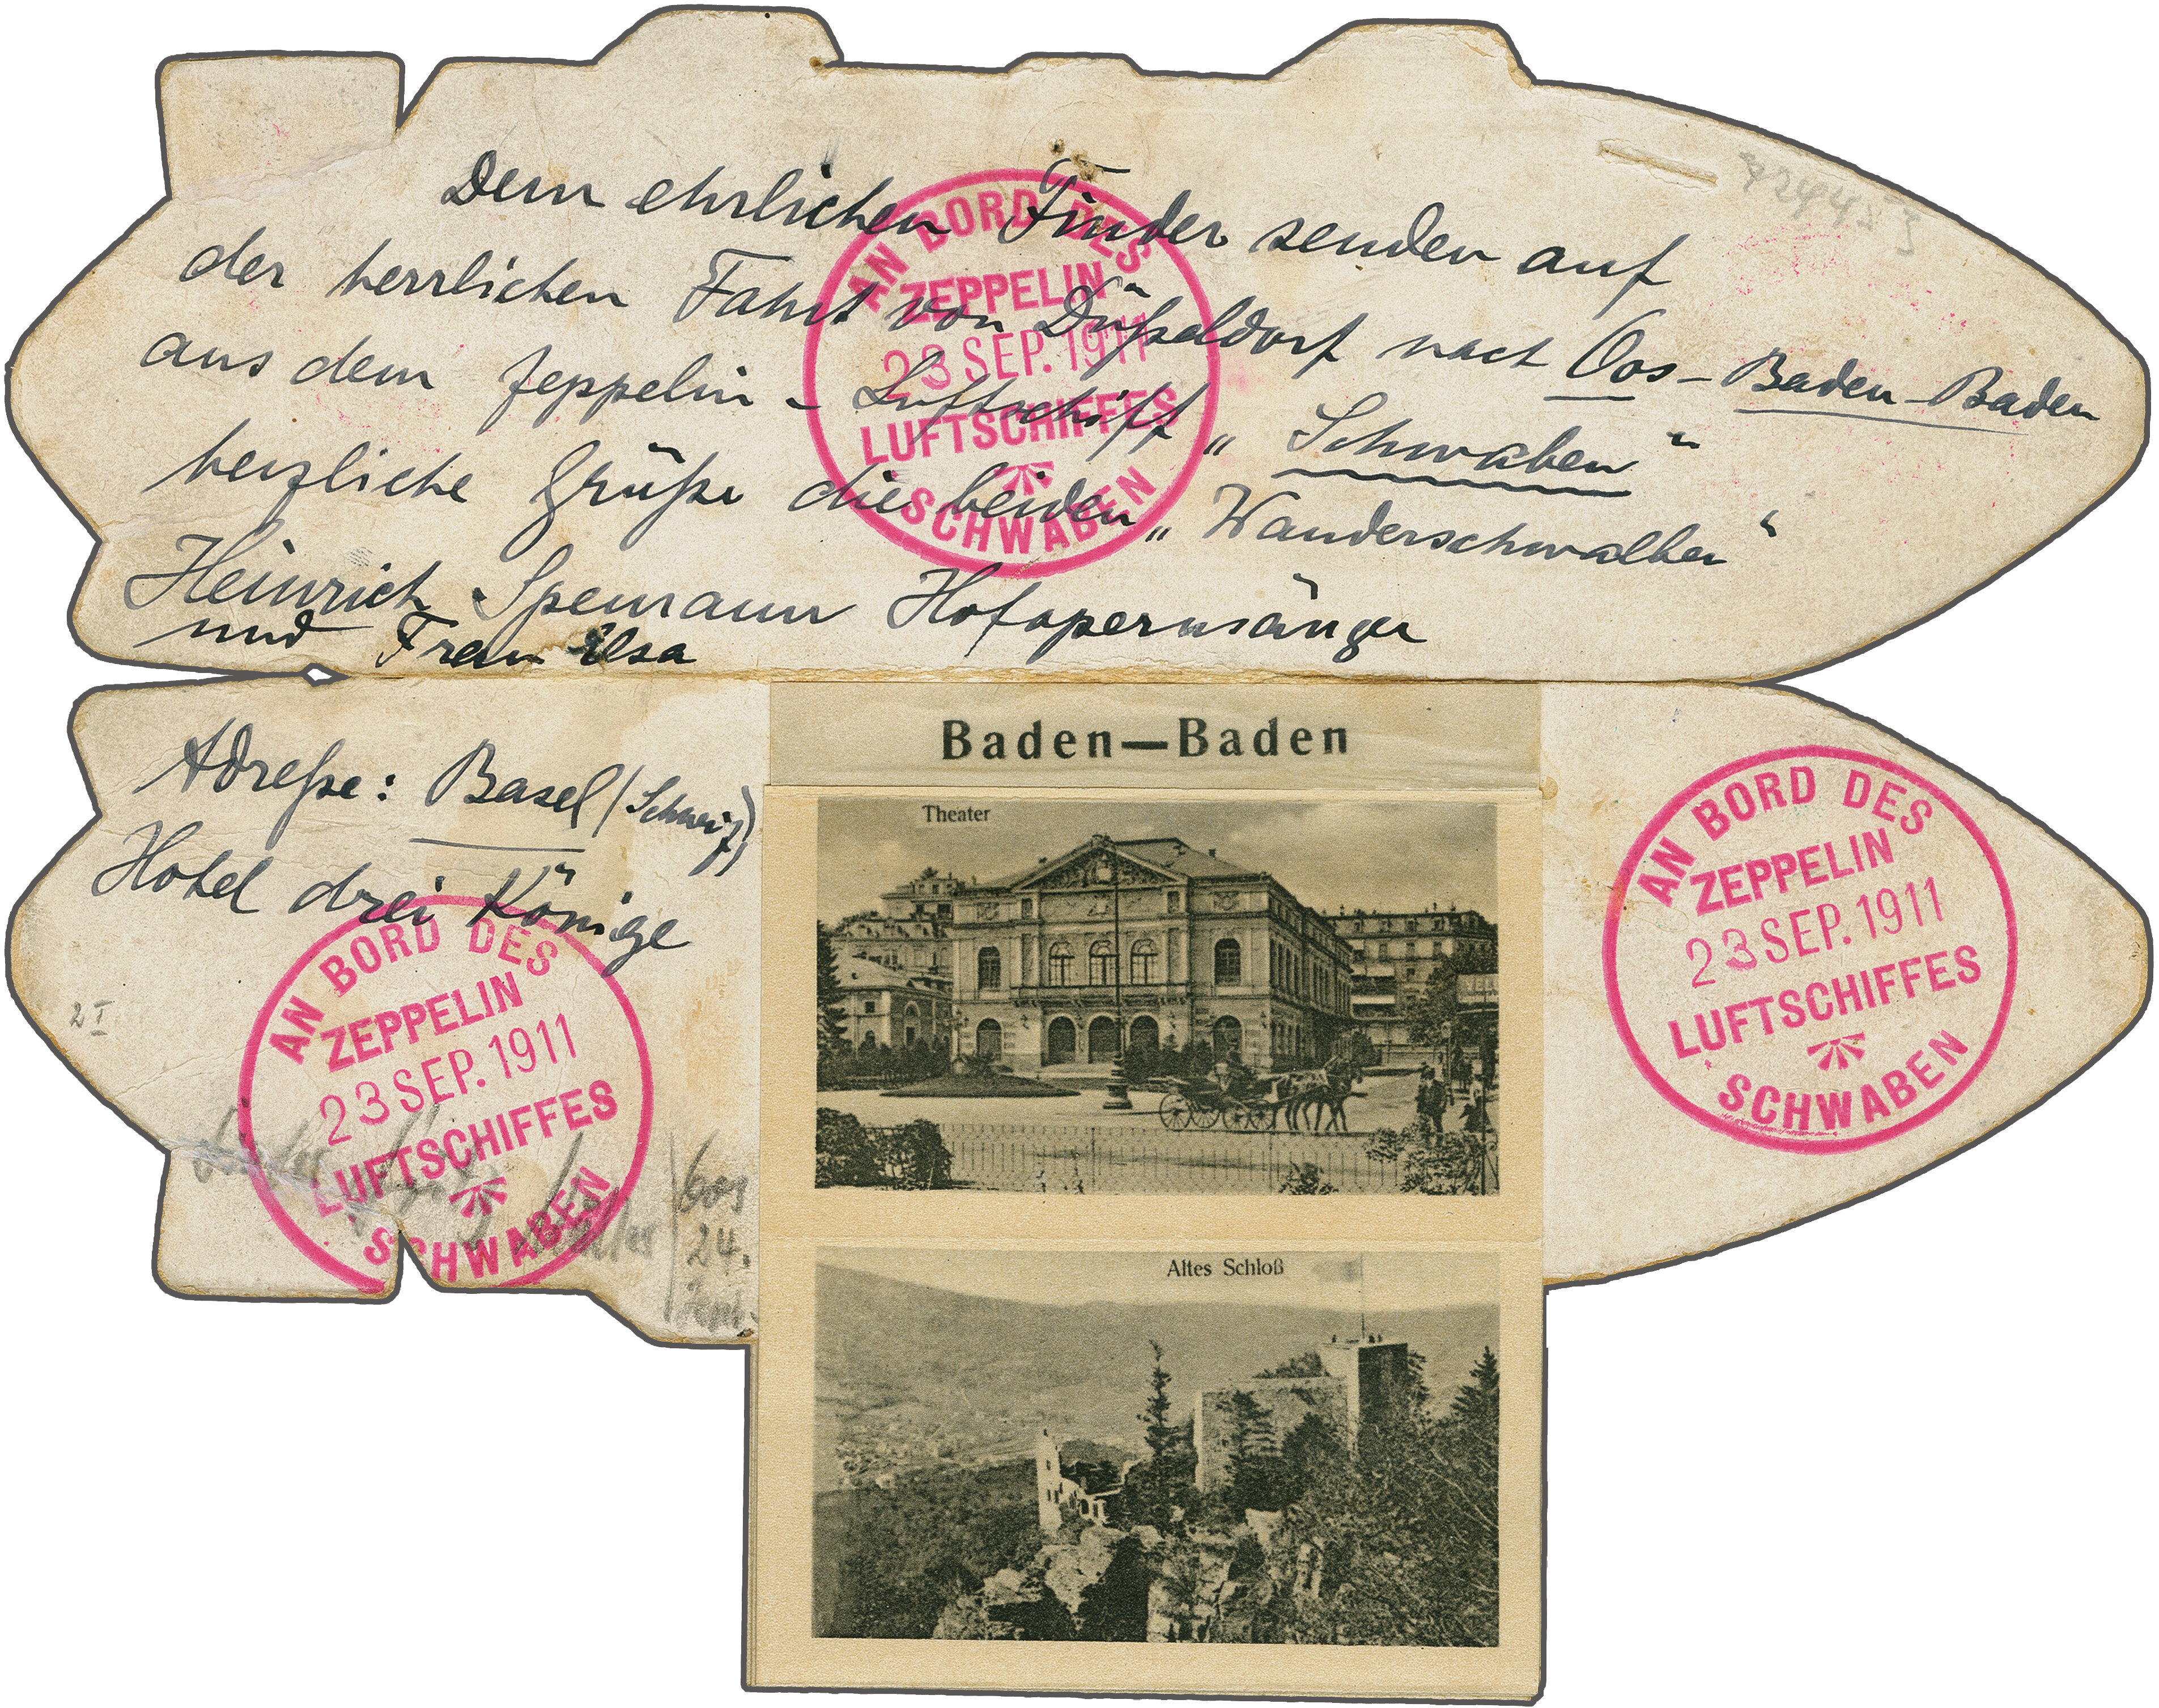 Dem ehrlichen Finder senden auf
der herrlichen Fahrt von Düßeldorf nach Oos-Baden-Baden
aus dem Zeppelin-Luftschiff „Schwaben"
herzliche Grüße die beiden „Wanderschwalben"
Heinrich Spemann Hofopernsänger
und Frau Elsa
AN BORD DES
ZEPPELIN
23 SEP. 1911
LUFTSCHIFFES
SCHWABEN
Adreße: Basel (Schweiz)
Hotel drei Könige
2 I
AN BORD DES
ZEPPELIN
23 SEP. 1911
LUFTSCHIFFES
SCHWABEN
Oos
24.
Baden—Baden
Theater
Altes Schloß
AN BORD DES
ZEPPELIN
23 SEP. 1911
LUFTSCHIFFES
SCHWABEN